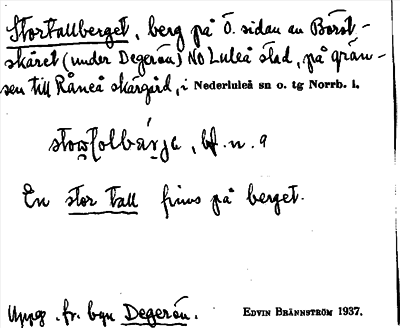 Stortallberget, berg på Ö. sidan av Börst-
skäret (under Degerön) NO Luleå stad, på grän-
sen till Råneå skärgård, i Nederluleå sn o. tg Norrb. l.
bf. n. a
En stor tall finns på berget.
Uppg. fr. byn Degerön.
EDVIN BRÄNNSTRÖM 1937.